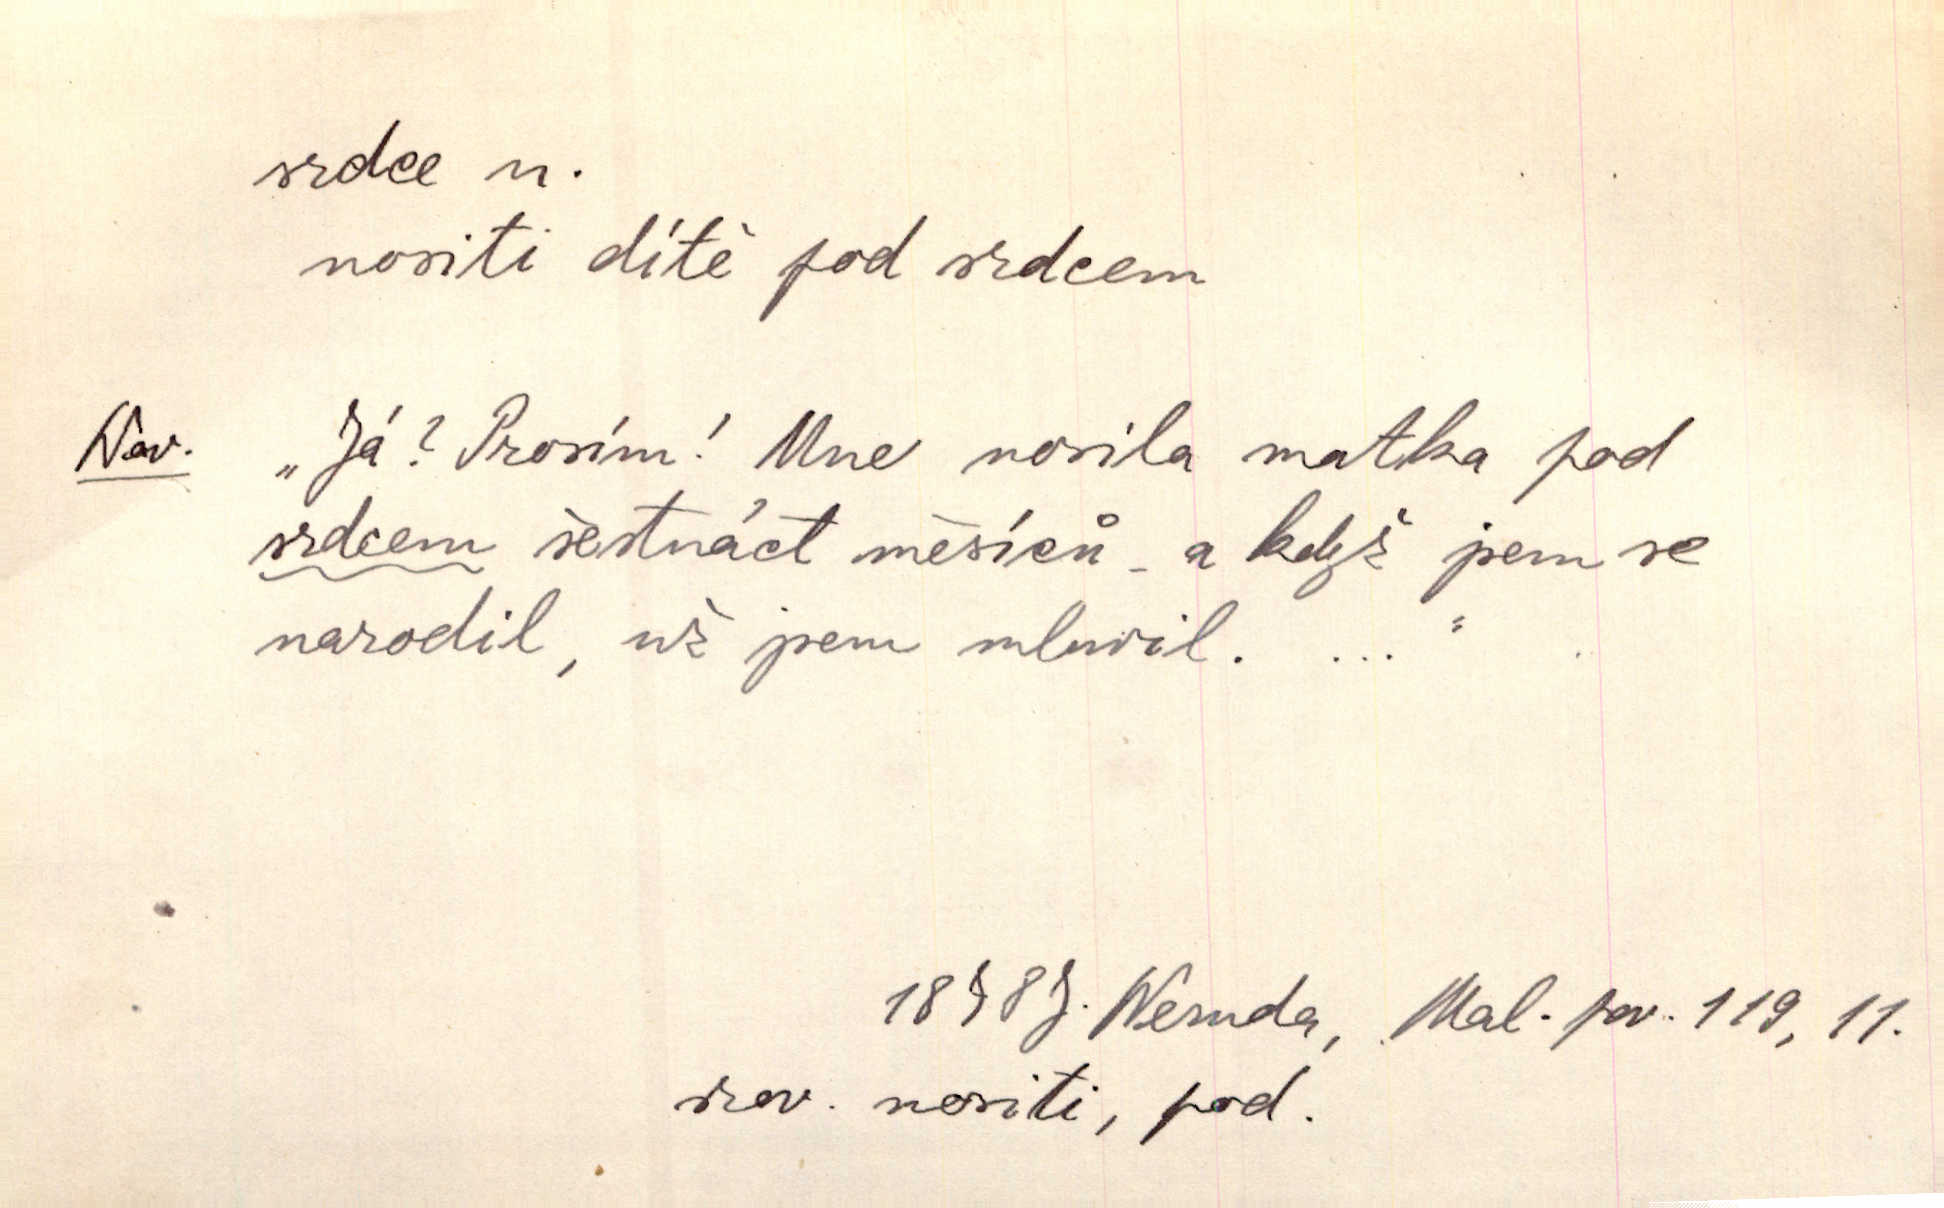 srdce n.
nositi dítě pod srdcem
Nov. „Já? Prosím! Mne nosila matka pod
srdcem šestnáct měsíců - a když jsem se
narodil, už jsem mluvil. ... "
1878 J. Neruda, Mal. pov. 119, 11.
srov. nositi, pod.